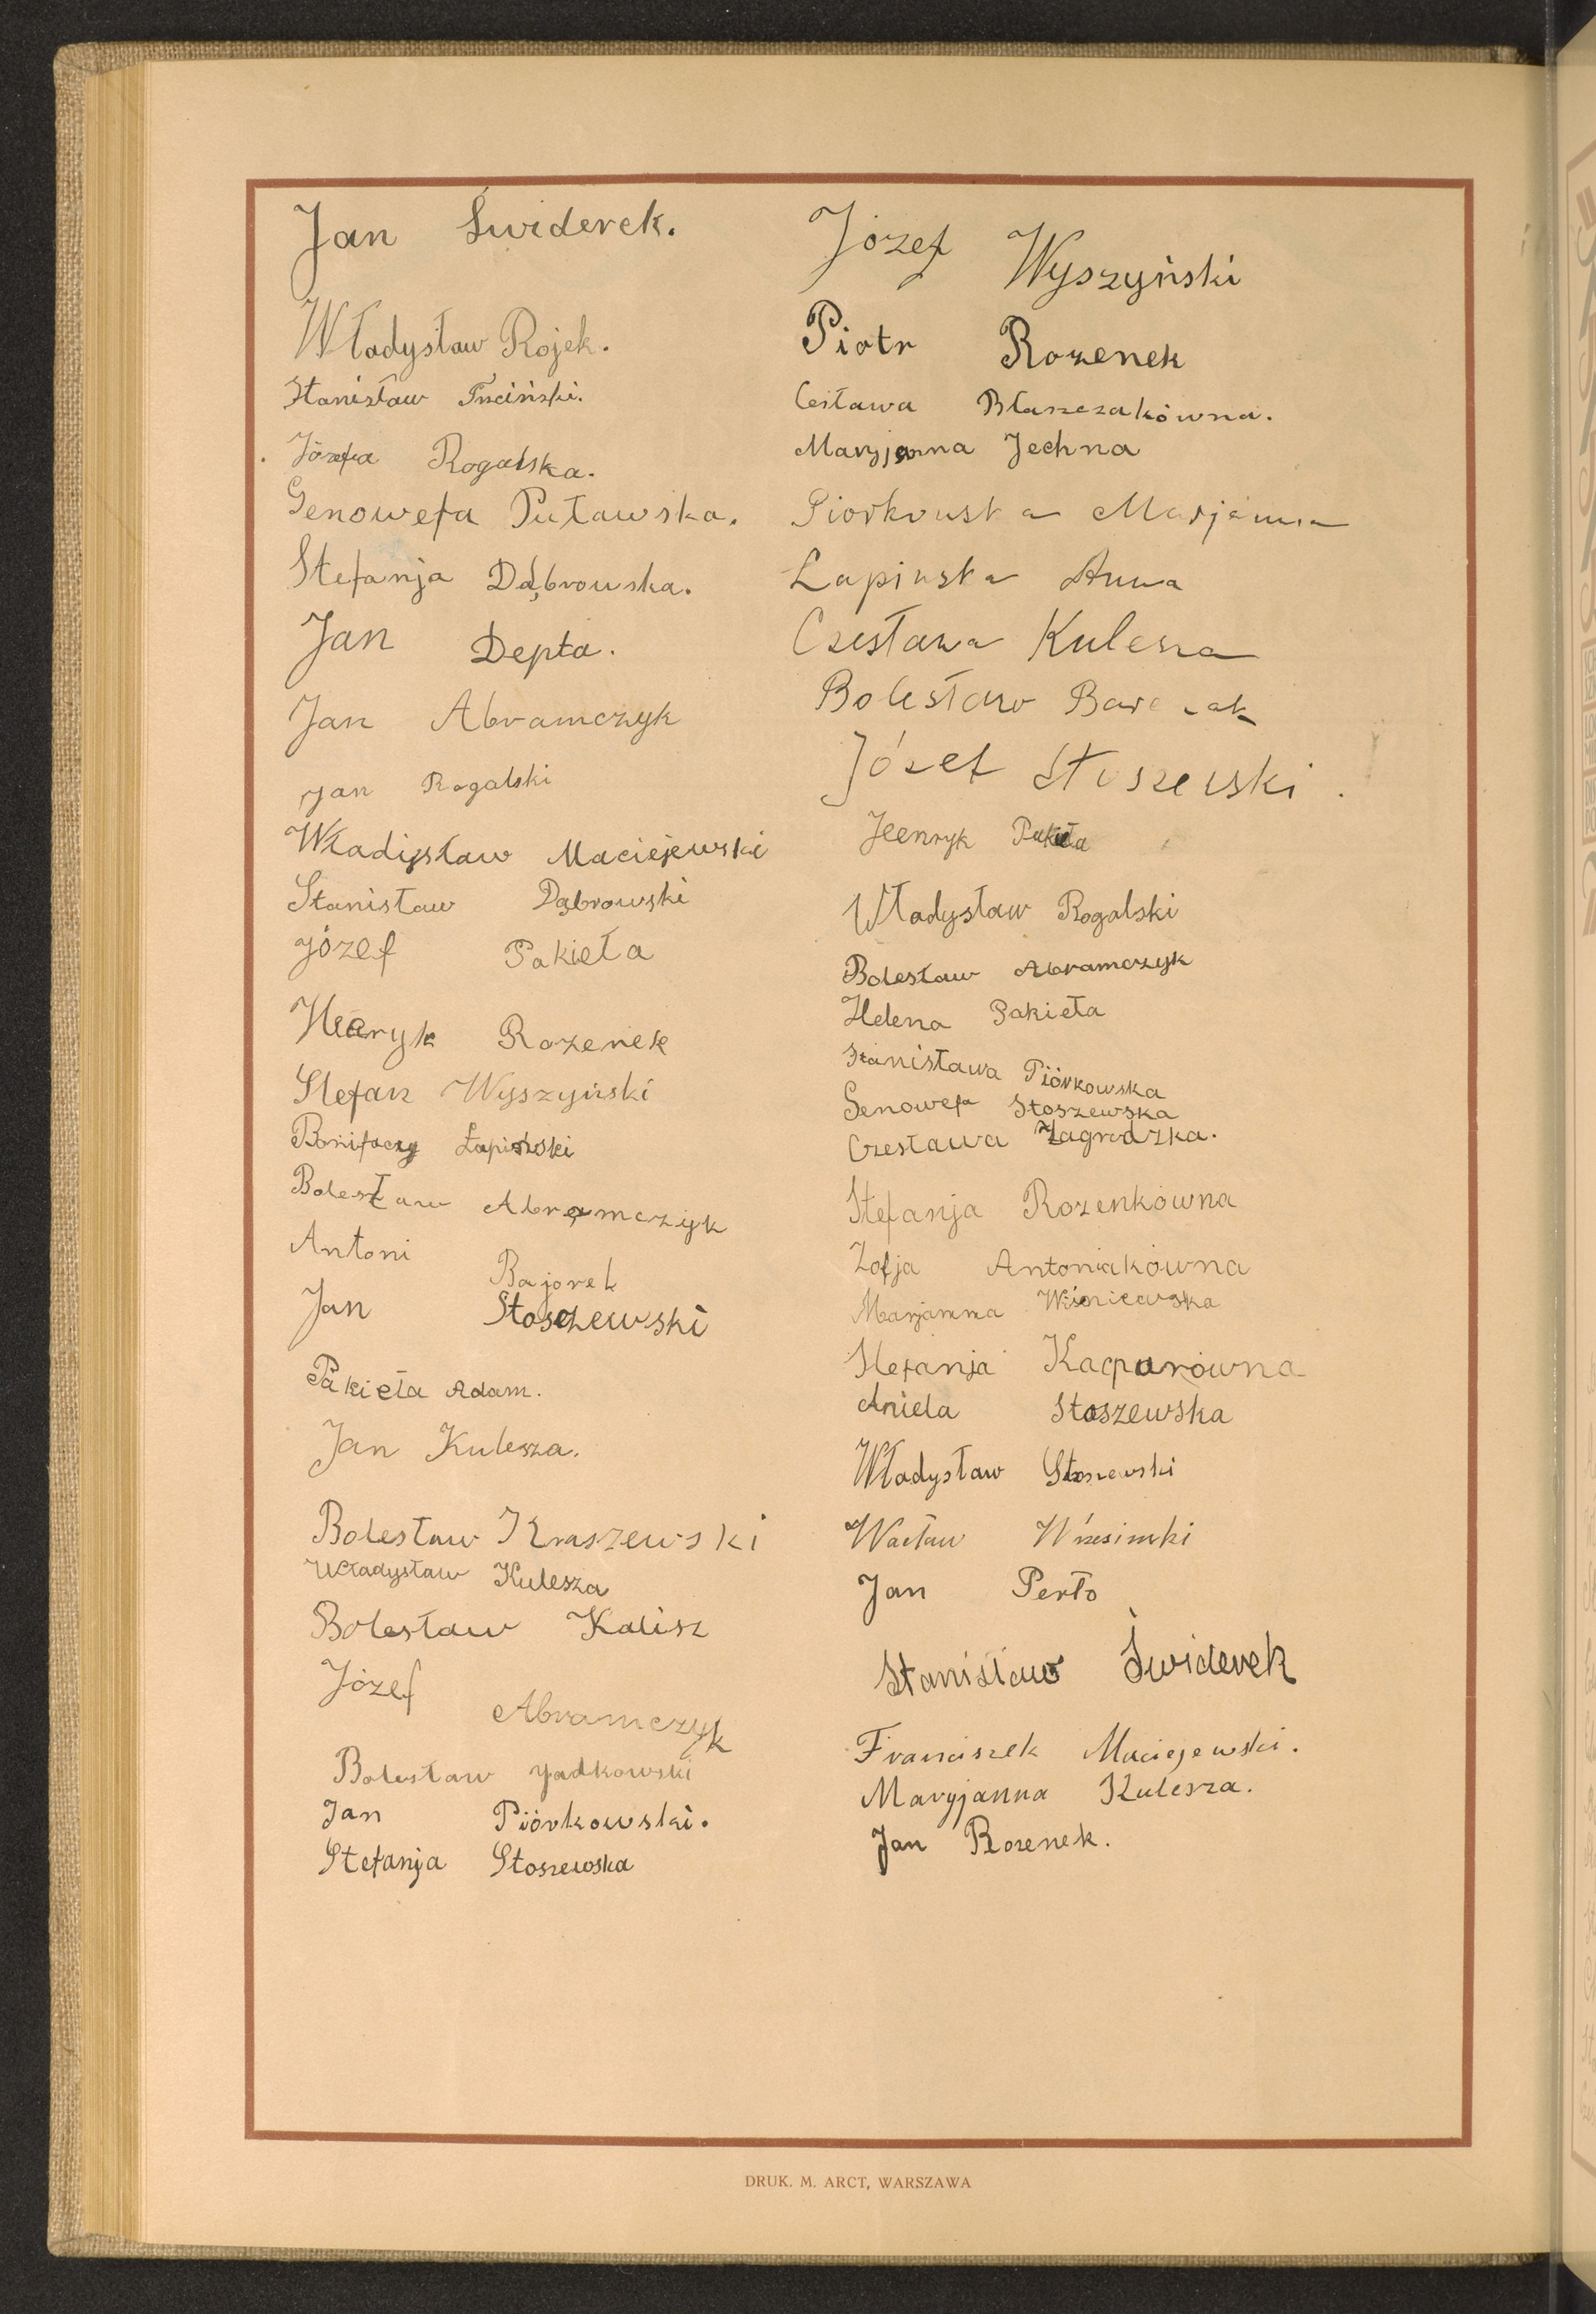 Jan Świderek.
Władysław Rojek.
Stanisław
Józefa Rogalska.
Genowefa Puławska.
Stefanja Dąbrowska.
Jan Depta.
Jan Abramczyk
Jan Rogalski
Władysław Maciejewski
Stanisław Dąbrowski
Józef Pakieła
Henryk Rozenek
Stefan Wyszyński
Bonifacy Łapiński
Bolesław Abramczyk
Antoni Bajorek
Jan Stoszewski
Pakieła Adam.
Jan Kulesza.
Bolesław Kraszewski
Władysław Kulesza
Bolesław Kalisz
Józef Abramczyk
Bolesław Jadkowski
Jan Piórkowski.
Stefanja Stoszewska
Józef Wyszyński
Piotr Rozenek
Cesława Błaszczakówna.
Maryjanna Jechna
Piorkowska Marjanna
Łapinska Anna
Czesława Kulesza
Bolesław
Józef Stoszewski.
Henryk Pakieła
Władysław Rogalski
Bolesław Abramczyk
Helena Pakieła
Stanisława Piórkowska
Genowefa Stoszewska
Czesława Zagrodzka.
Stefanja Rozenkówna
Zofja Antoniakówna
Marjanna Wiśniewska
Stefanja Kacparówna
Aniela Stoszewska
Władysław Stoszewski
Wacław
Jan Perło
Stanisław Świderek
Franciszek Maciejewski.
Maryjanna Kulesza.
Jan Rozenek.
DRUK. M. ARCT, WARSZAWA